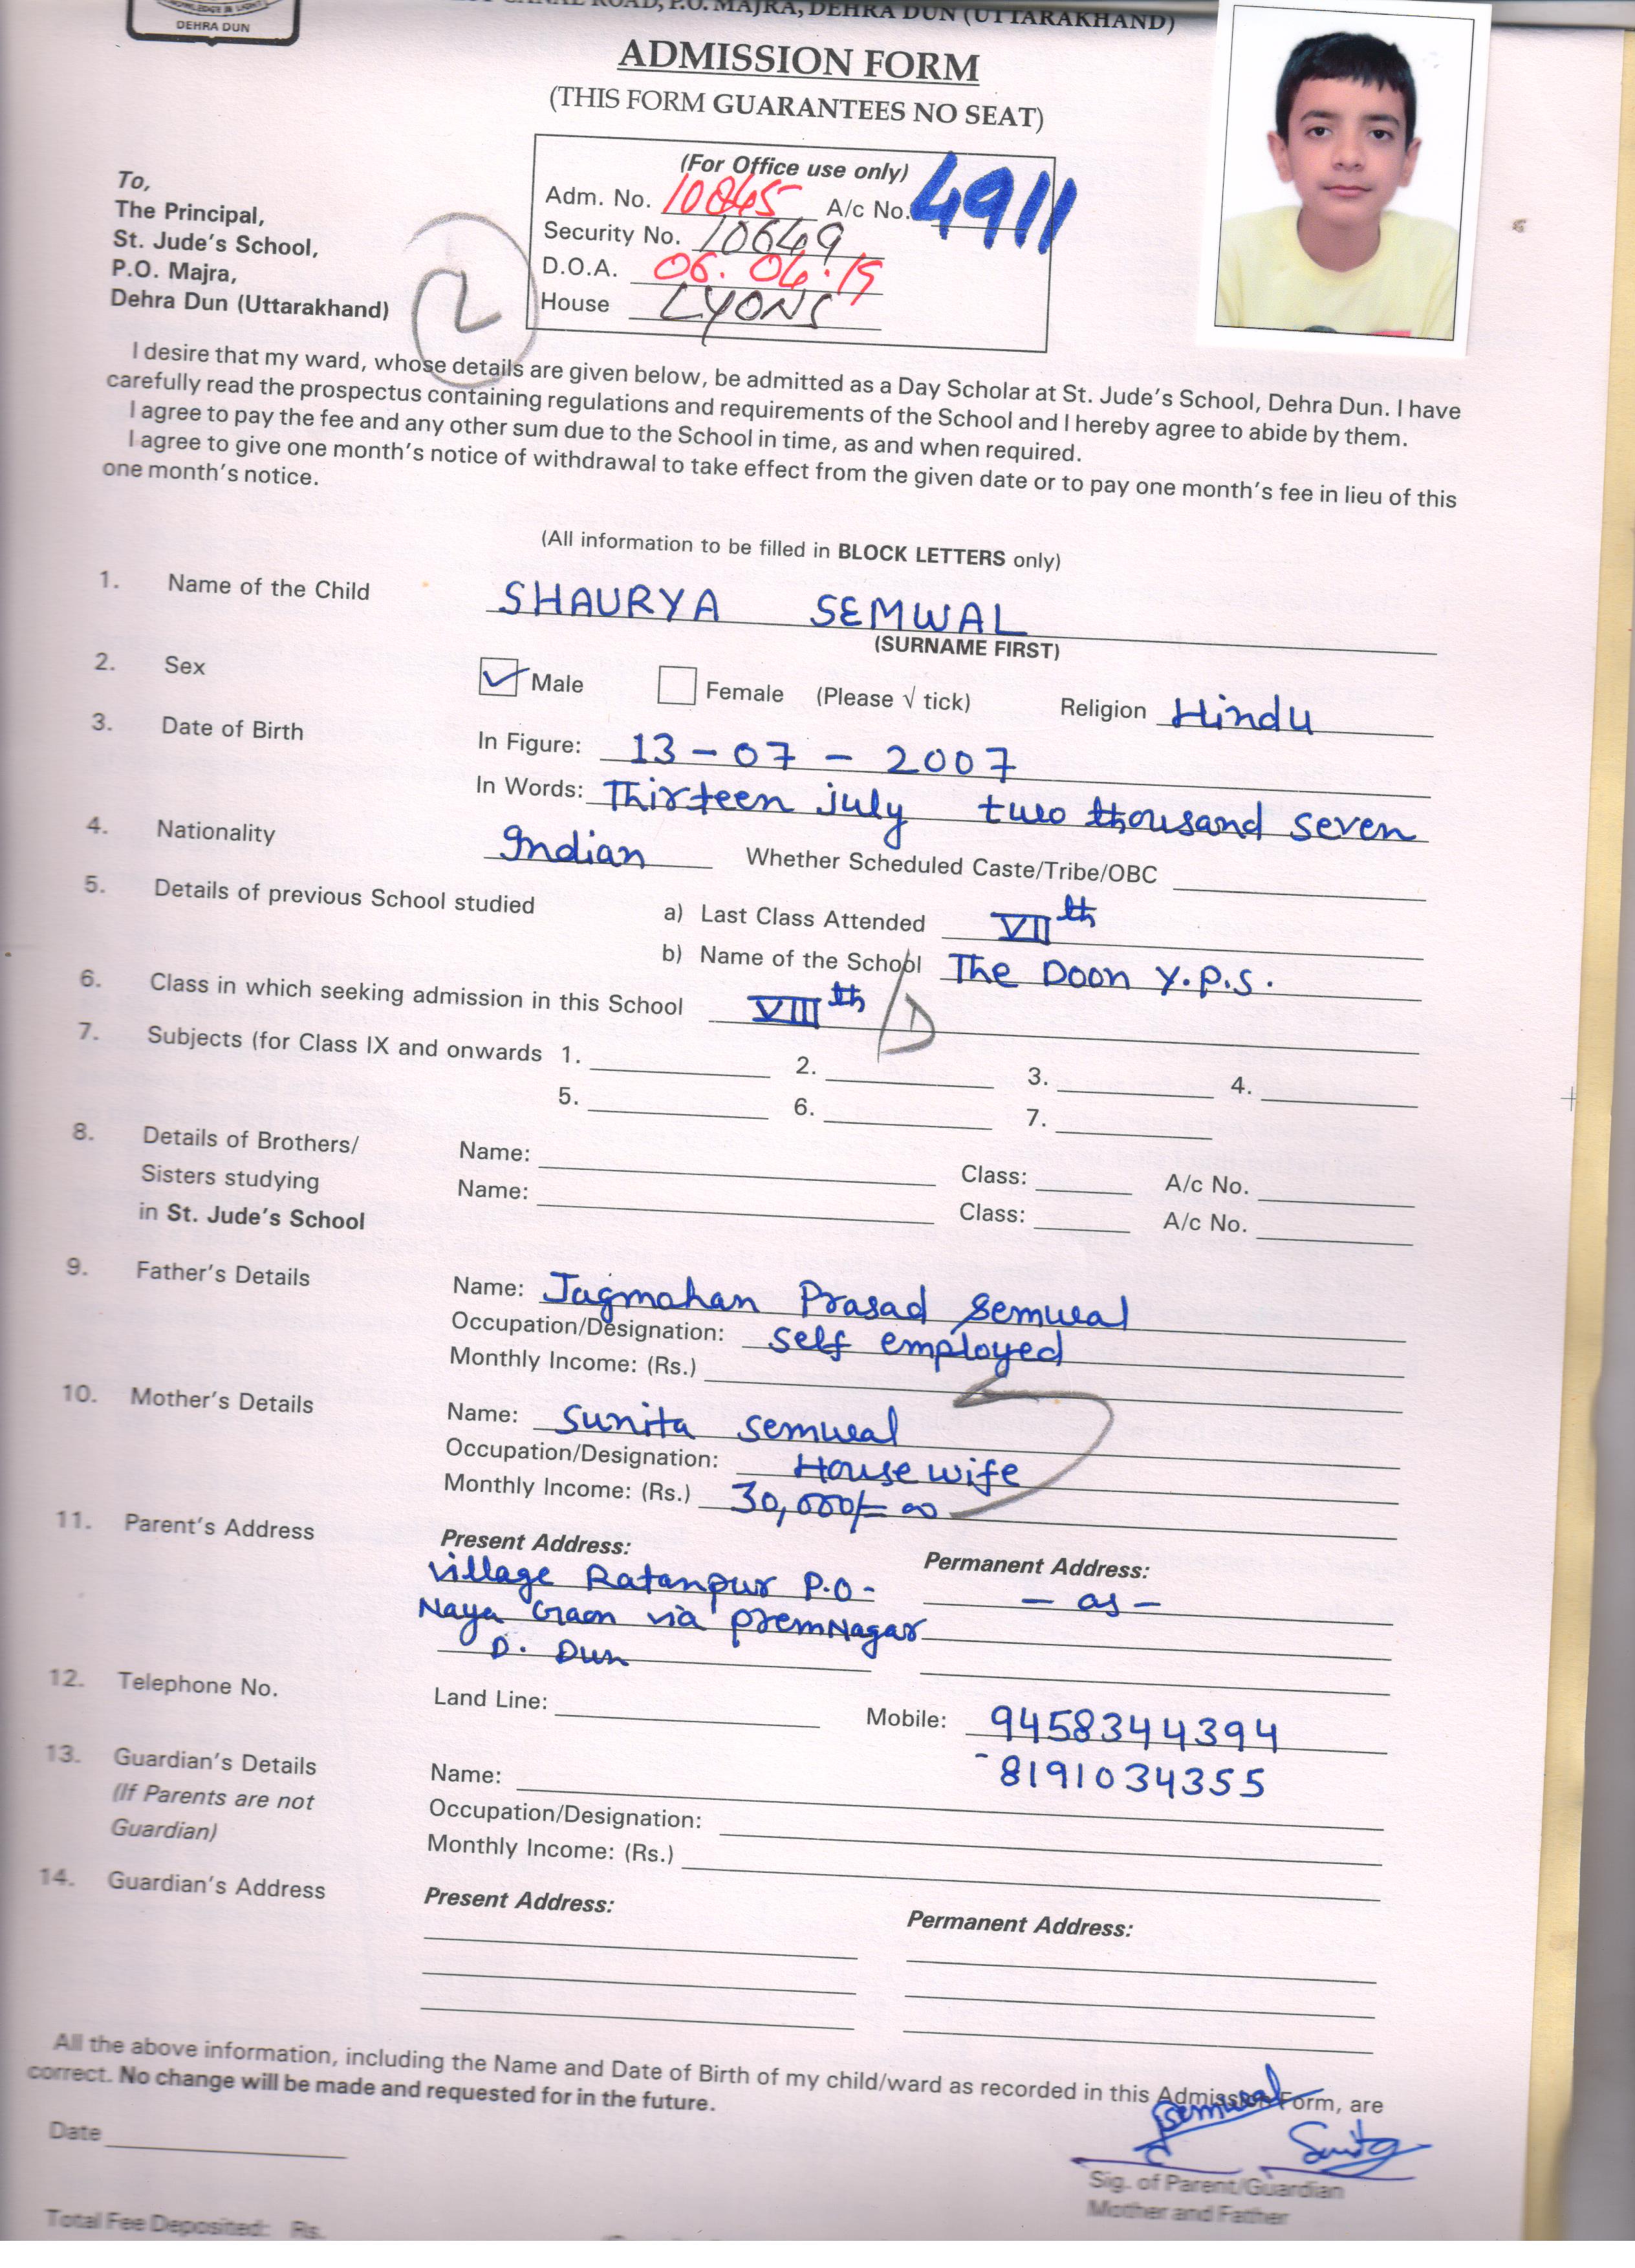 KNOWLEDGE IS LIGHT
DEHRA DUN
CANAL ROAD, P.O. MAJRA, DEHRA DUN (UTTARAKHAND)
ADMISSION FORM
(THIS FORM GUARANTEES NO SEAT)
(For Office use only)
Adm. No. 10845 A/c No. 4911
Security No. 10649
D.O.A. 06.04.19
House LYONS
To,
The Principal,
St. Jude's School,
P.O. Majra,
Dehra Dun (Uttarakhand)
2
I desire that my ward, whose details are given below, be admitted as a Day Scholar at St. Jude's School, Dehra Dun. I have
carefully read the prospectus containing regulations and requirements of the School and I hereby agree to abide by them.
I agree to pay the fee and any other sum due to the School in time, as and when required.
I agree to give one month's notice of withdrawal to take effect from the given date or to pay one month's fee in lieu of this
one month's notice.
(All information to be filled in BLOCK LETTERS only)
1. Name of the Child SHAURYA SEMWAL
(SURNAME FIRST)
2. Sex Male Female (Please √ tick) Religion Hindu
3. Date of Birth In Figure: 13-07-2007
In Words: Thirteen july two thousand seven
4. Nationality Indian Whether Scheduled Caste/Tribe/OBC
5. Details of previous School studied a) Last Class Attended VIIth
b) Name of the School The Doon Y.P.S.
6. Class in which seeking admission in this School VIIIth /D
7. Subjects (for Class IX and onwards 1. 2. 3. 4.
5. 6. 7.
8. Details of Brothers/ Name: Class: A/c No.
Sisters studying Name: Class: A/c No.
in St. Jude's School
9. Father's Details Name: Jagmohan Prasad Semwal
Occupation/Designation: Self employed
Monthly Income: (Rs.)
10. Mother's Details Name: Sunita Semwal
Occupation/Designation: House wife
Monthly Income: (Rs.) 30,000/=
11. Parent's Address Present Address: Permanent Address:
Village Ratanpur P.O- - as -
Naya Gaon via PremNagar
D. Dun
12. Telephone No. Land Line: Mobile: 9458344394
8191034355
13. Guardian's Details Name:
(If Parents are not Occupation/Designation:
Guardian) Monthly Income: (Rs.)
14. Guardian's Address Present Address: Permanent Address:
All the above information, including the Name and Date of Birth of my child/ward as recorded in this Admission Form, are
correct. No change will be made and requested for in the future.
Semwal
Sunita
Date
Sig. of Parent/Guardian
Mother and Father
Total Fee Deposited: Rs.